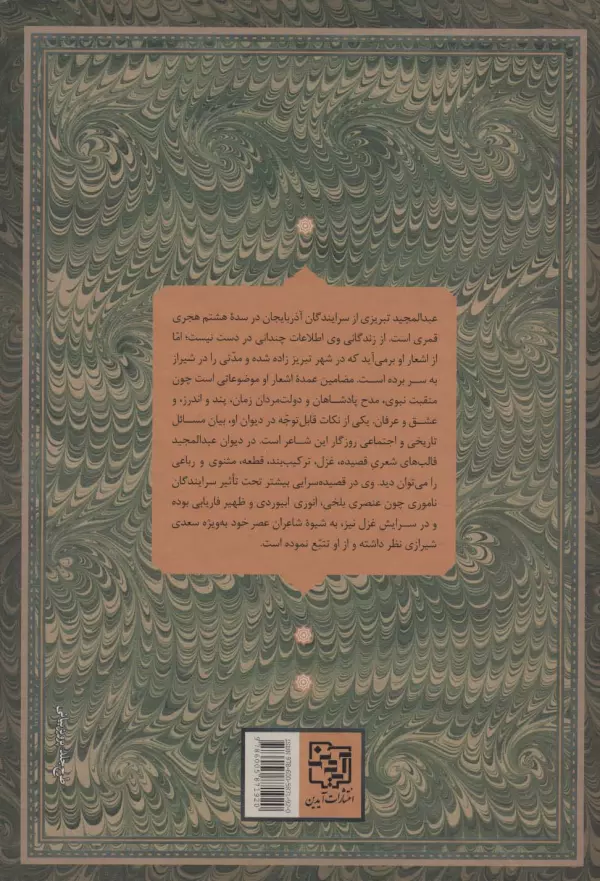 عبدالمجید تبریزی از سرایندگان آذربایجان در سدهٔ هشتم هجری
قمری است. از زندگانی وی اطلاعات چندانی در دست نیست؛ امّا
از اشعار او برمی‌آید که در شهر تبریز زاده شده و مدّتی را در شیراز
به سر برده است. مضامین عمدهٔ اشعار او موضوعاتی است چون
منقبت نبوی، مدح پادشاهان و دولت‌مردان زمان، پند و اندرز، و
عشق و عرفان. یکی از نکات قابل‌توجّه در دیوان او، بیان مسائل
تاریخی و اجتماعی روزگار این شاعر است. در دیوان عبدالمجید
قالب‌های شعریِ قصیده، غزل، ترکیب‌بند، قطعه، مثنوی و رباعی
را می‌توان دید. وی در قصیده‌سرایی بیشتر تحت تأثیر سرایندگان
ناموری چون عنصری بلخی، انوری ابیوردی و ظهیر فاریابی بوده
و در سرایش غزل نیز، به شیوهٔ شاعران عصر خود به‌ویژه سعدی
شیرازی نظر داشته و از او تتبّع نموده است.
انتشارات آیدین